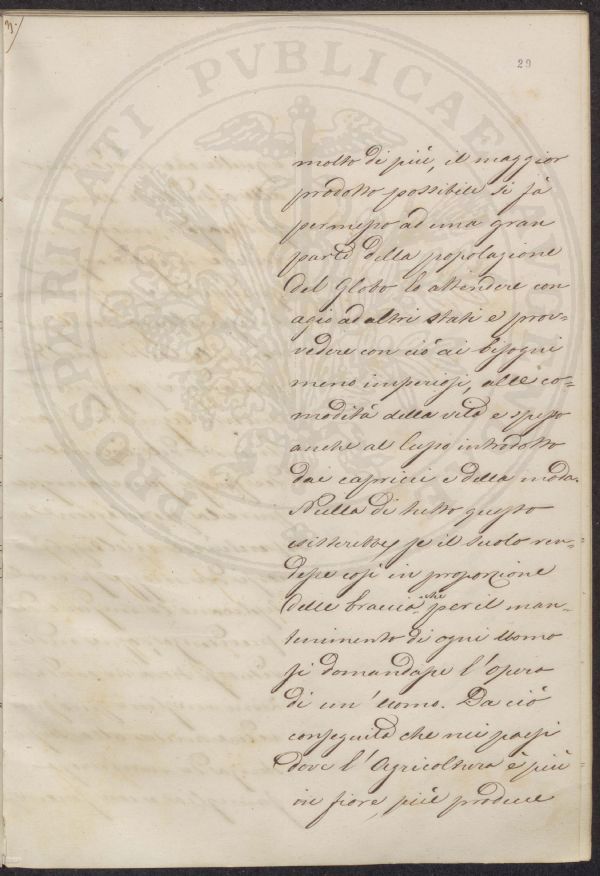 29
molto di più, il maggior
prodotto possibile si fà
permesso ad una gran
parte della popolazione
del globo lo attendere con
agio ad altri stati e prov=
vedere con ciò ai bisogni
meno imperiosi, alle co=
modità della vita e spesso
anche al lusso introdotto
dai capricci e della moda.
Nulla di tutto questo
esisterebbe se il suolo ren=
desse così in proporzione
delle braccia che per il man=
tenimento di ogni uomo
si domandasse l'opera
di un'uomo. Da ciò
conseguita che nei paesi
dove l'Agricoltura è più
in fiore, più produce
PROSPERITATI PVBLICAE